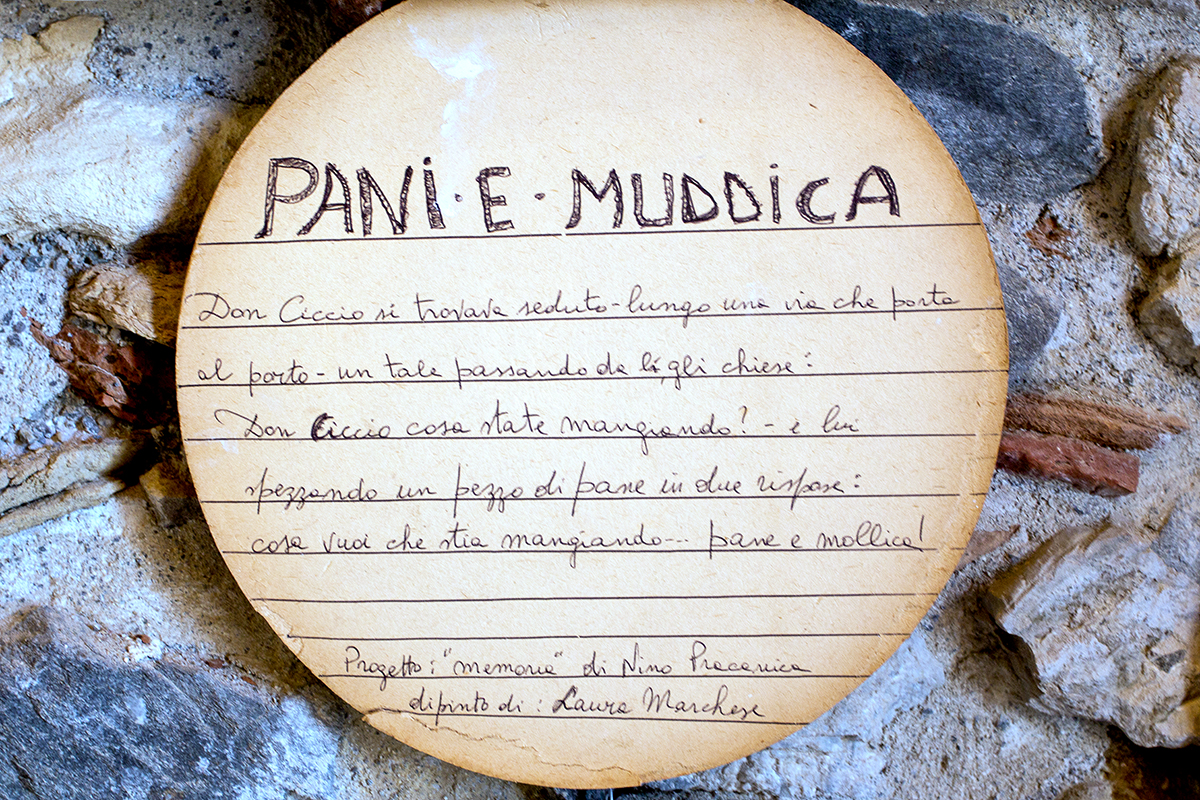 PANI · E · MUDDICA
Don Ciccio si trovava seduto - lungo una via che porta
al porto - un tale passando da lì, gli chiese:
Don Ciccio cosa state mangiando? - e lui
spezzando un pezzo di pane in due rispose:
cosa vuoi che stia mangiando--- pane e mollica!
Progetto: "memoria" di Nino Pracanica
dipinto di: Laura Marchese